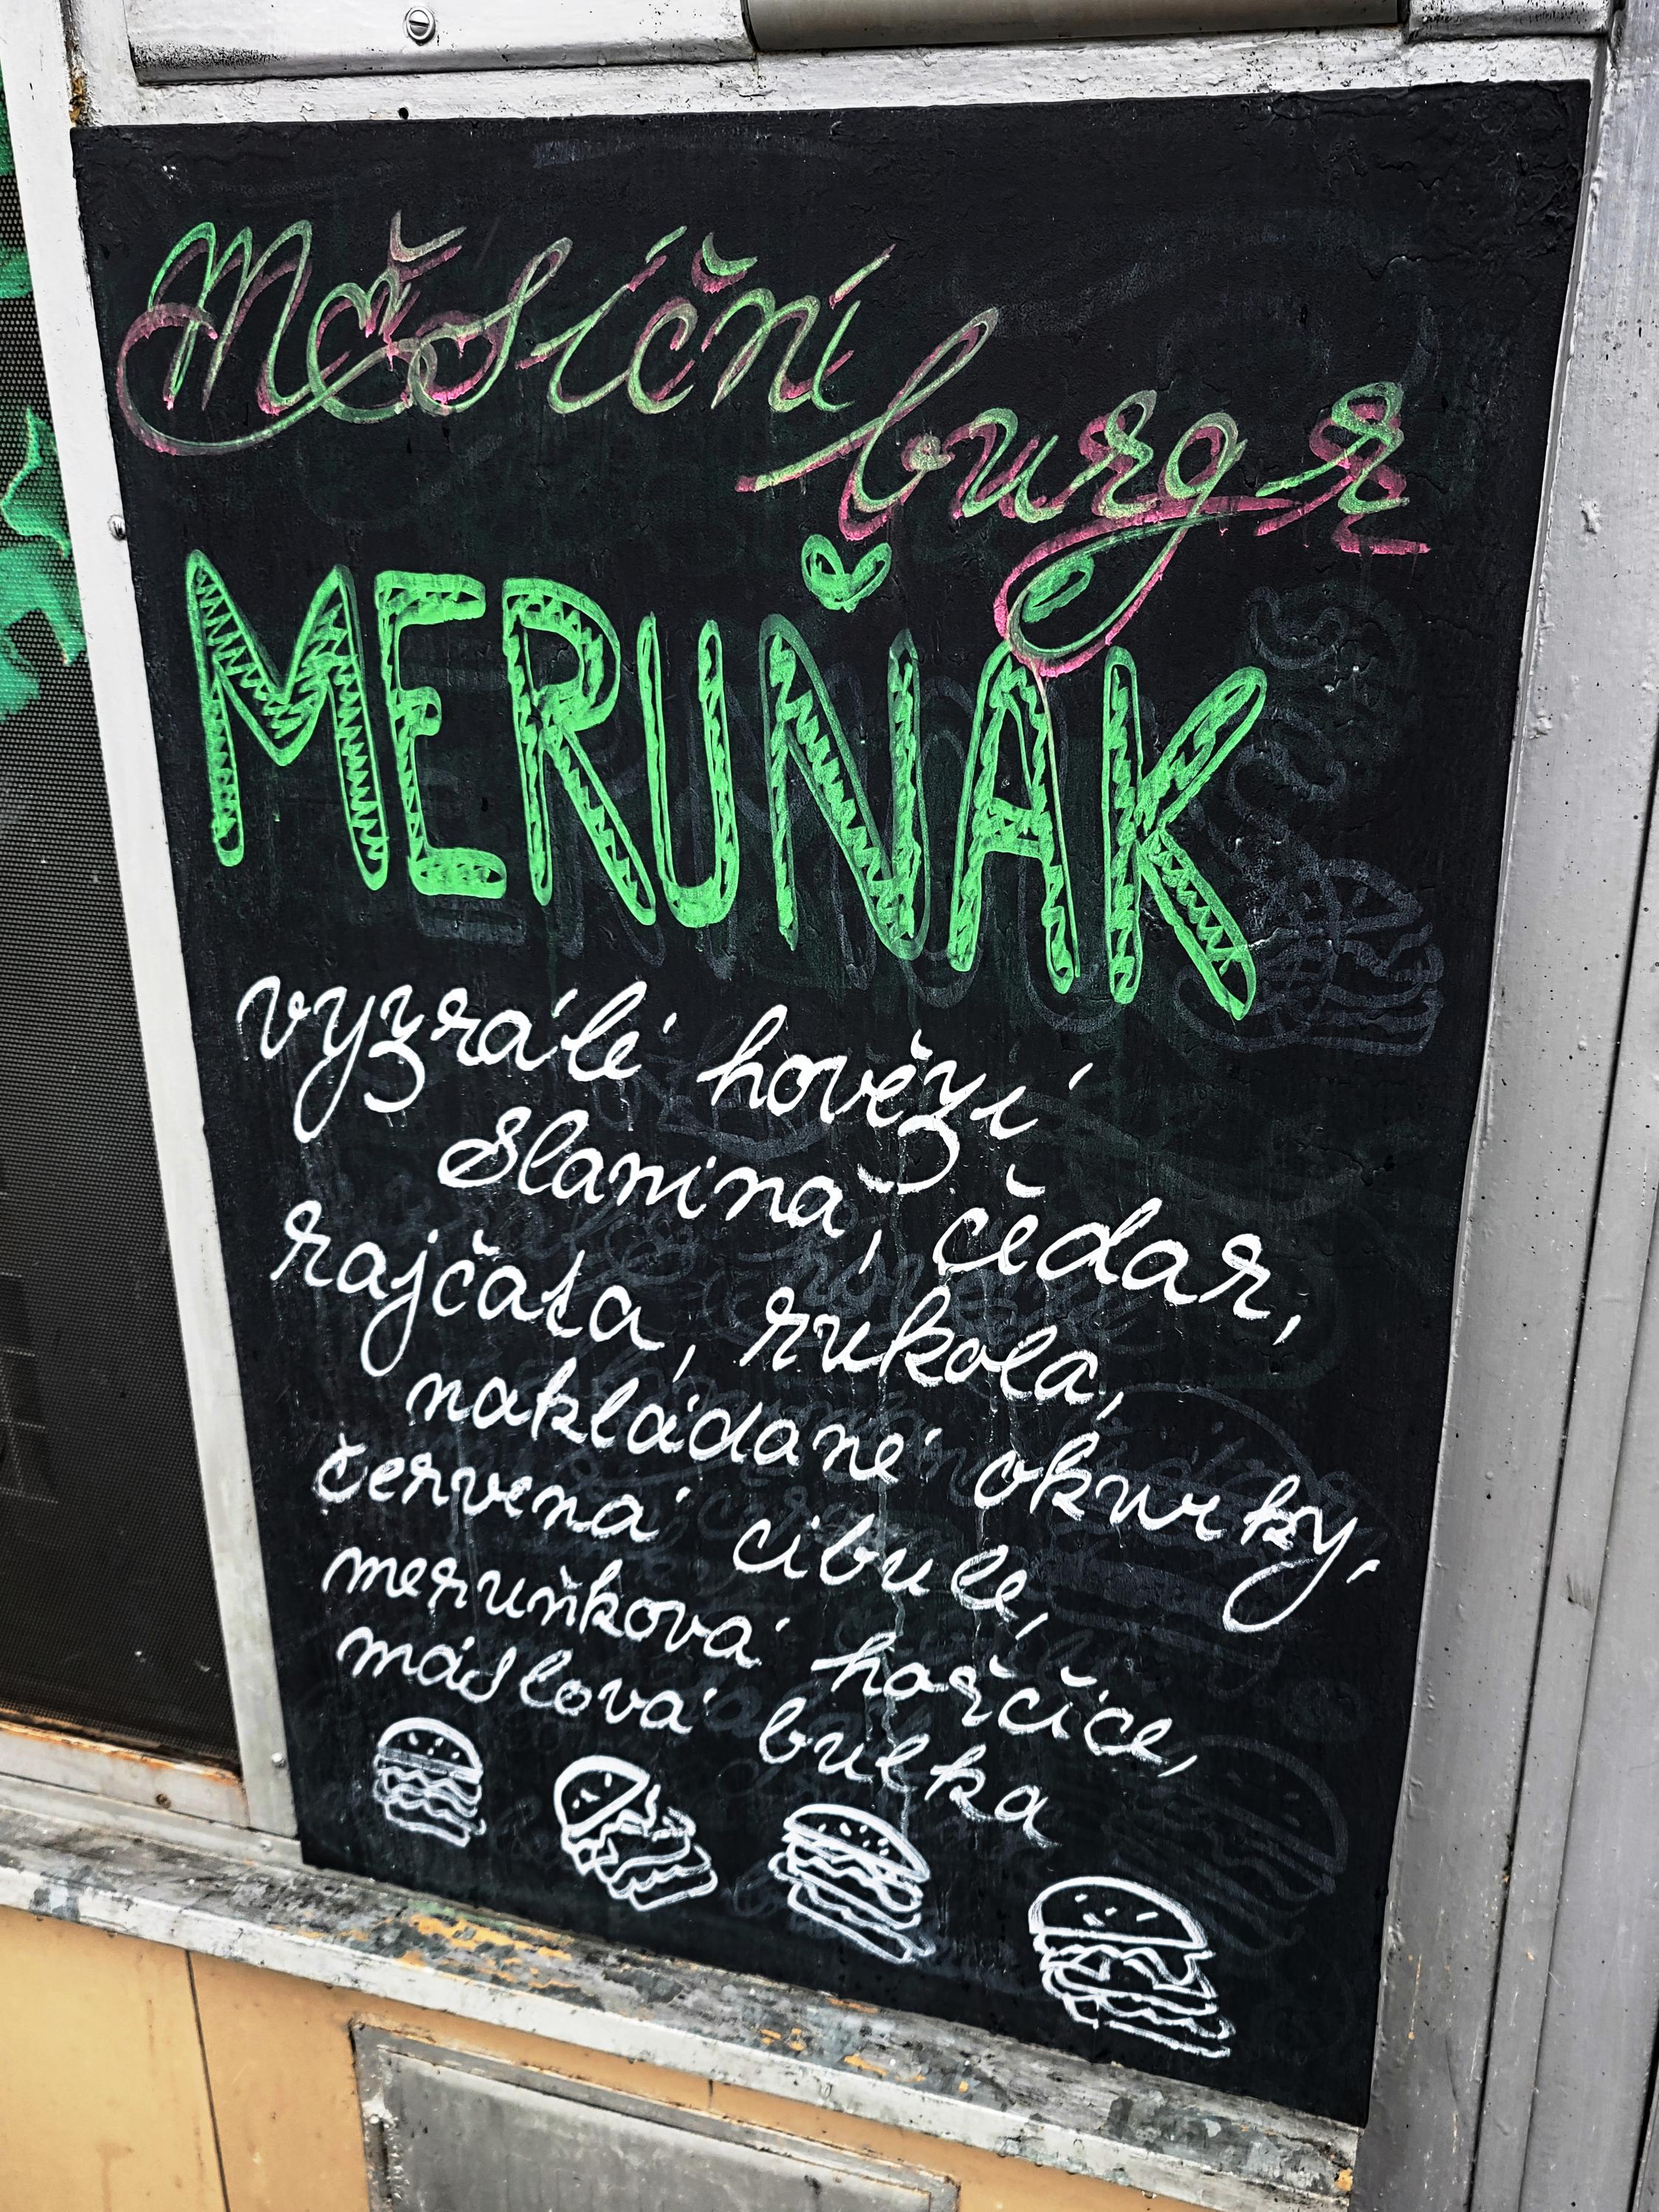 Měsíční
burger
MERUŇÁK
vyzrálé hovězí
slanina, čedar,
rajčata, rukola,
nakládané okurky,
červená cibule,
meruňková hořčice,
máslová bulka